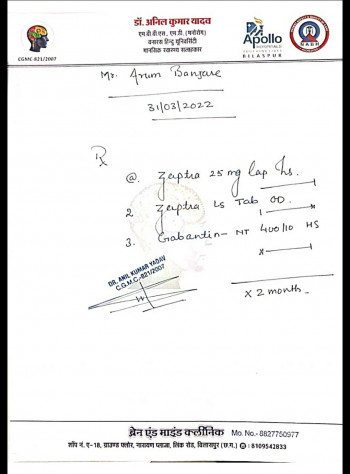 डॉ. अनिल कुमार यादव
एम.बी.बी.एस., एम.डी. (मनोरोग)
बनारस हिन्दू यूनिवर्सिटी
मानसिक स्वास्थ्य सलाहकार
CGMC-821/2007
Apollo
HOSPITALS
BILASPUR
NABH
Mr. Arum Banjare
31/03/2022
Rx
@. Zeptra 25 mg Cap hs.
2. Zeptra LS Tab OD.
3. Gabantin-NT 400/10 HS
x 2 month.
DR. ANIL KUMAR YADAV
C.G.M.C.-821/2007
ब्रेन एंड माइंड क्लीनिक Mo. No.- 8827750977
शॉप नं. ए-18, ग्राउण्ड फ्लोर, नारायण प्लाजा, लिंक रोड, बिलासपुर (छ.ग.) : 8109542833